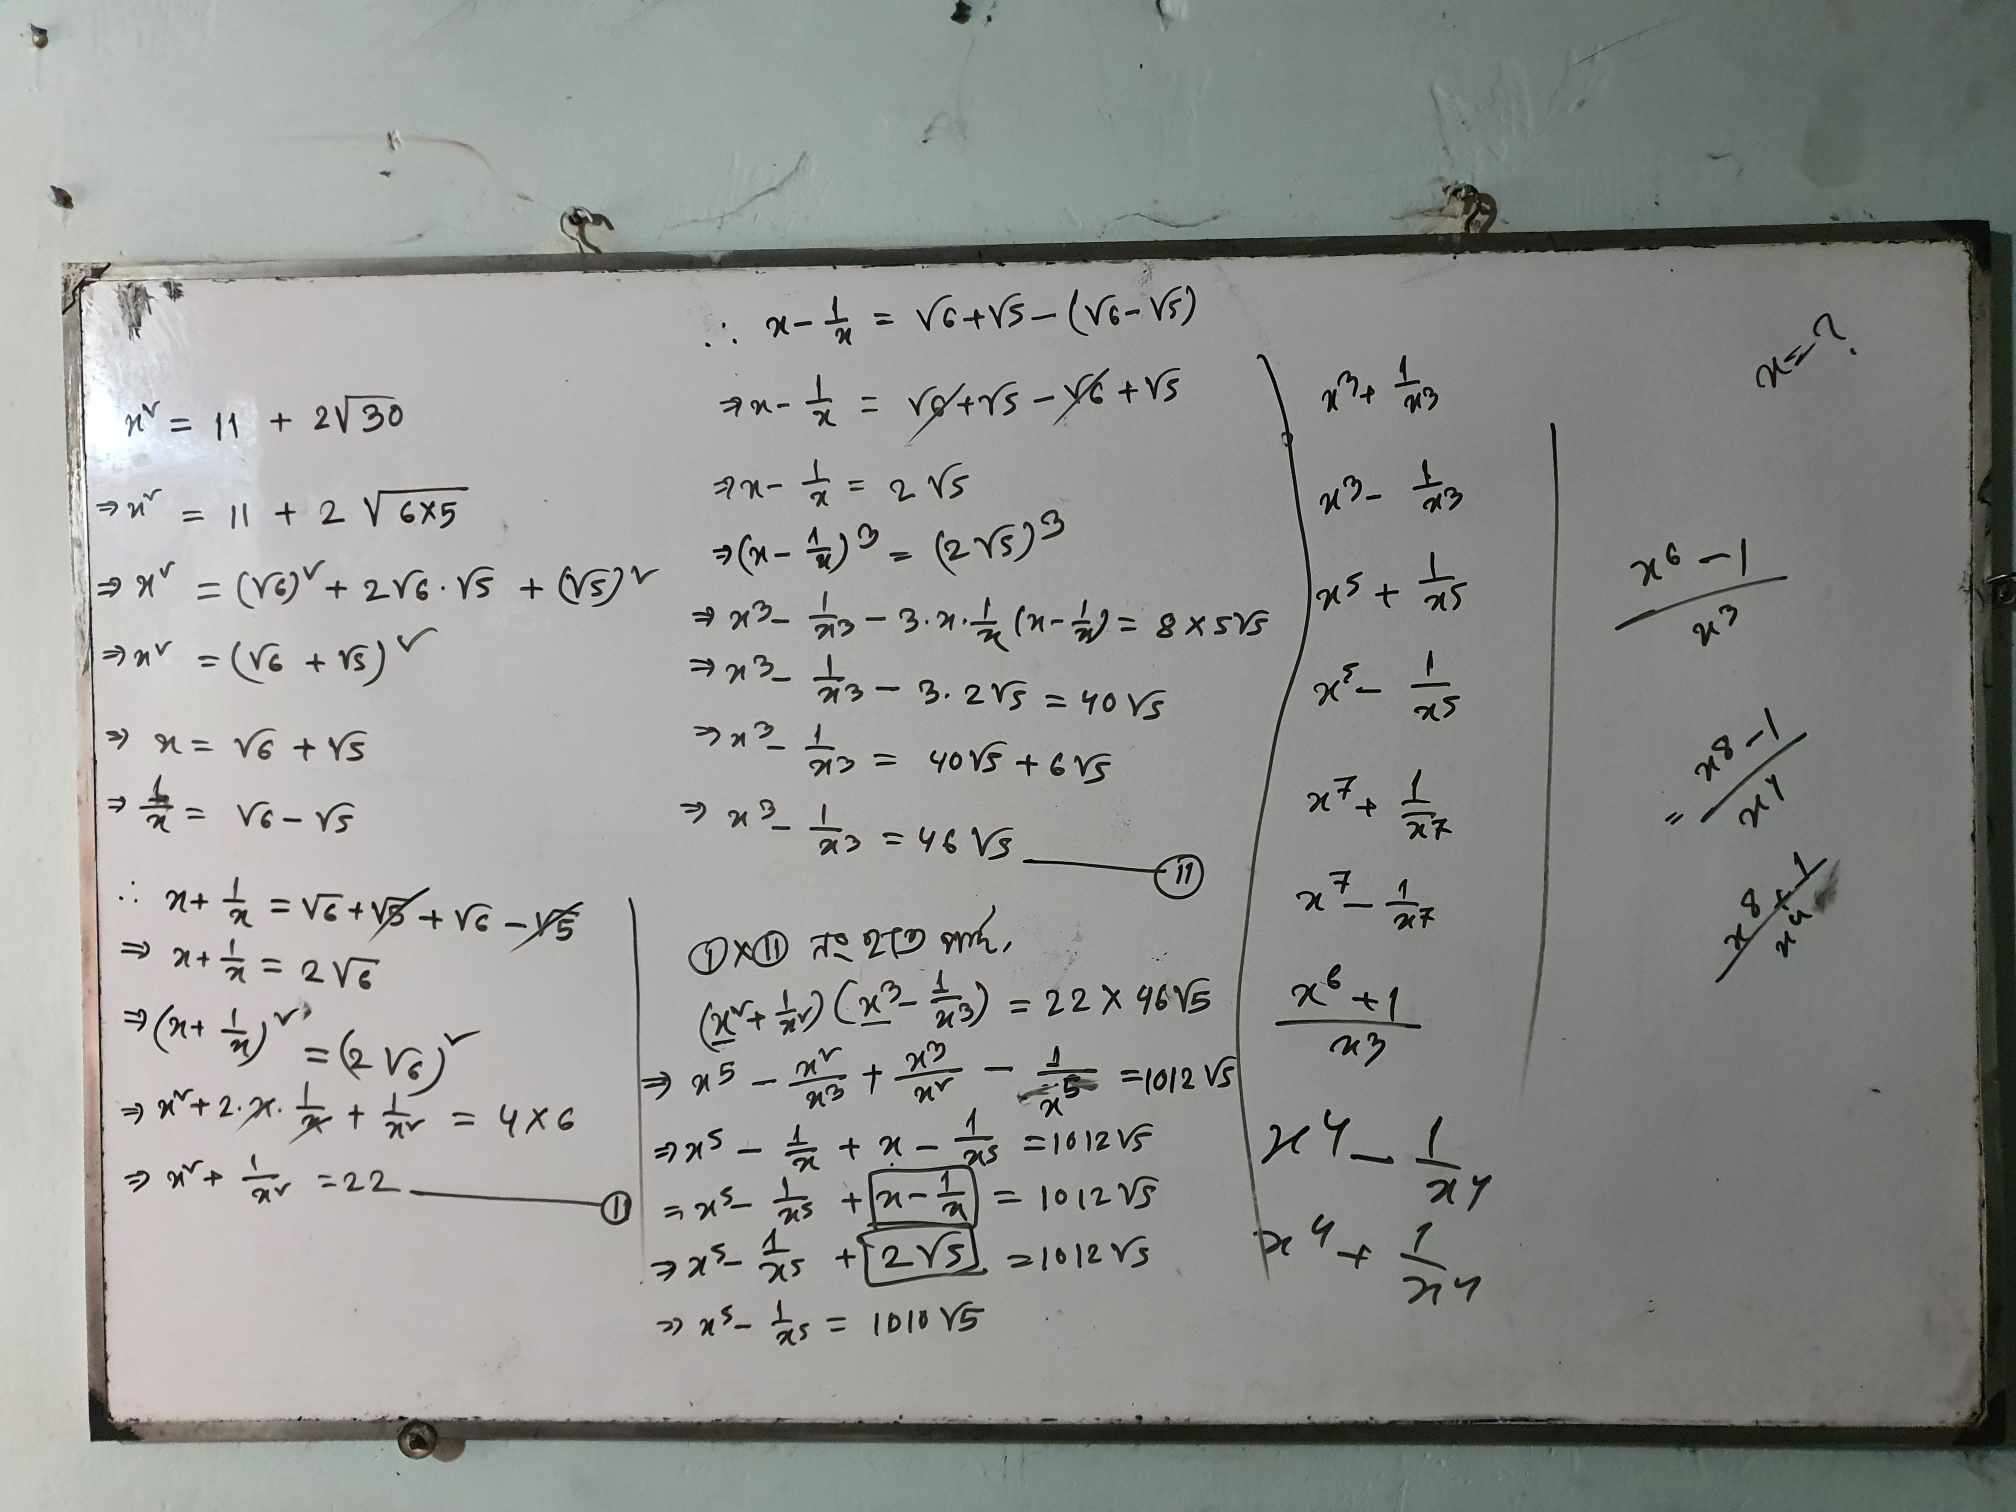 x² = 11 + 2√30
⇒ x² = 11 + 2 √6×5
⇒ x² = (√6)² + 2√6 . √5 + (√5)²
⇒ x² = (√6 + √5)²
⇒ x = √6 + √5
⇒ 1/x = √6 – √5
∴ x + 1/x = √6 + √5 + √6 – √5
⇒ x + 1/x = 2√6
⇒ (x + 1/x)² = (2√6)²
⇒ x² + 2.x. 1/x + 1/x² = 4×6
⇒ x² + 1/x² = 22 —— (i)
∴ x – 1/x = √6 + √5 – (√6 – √5)
⇒ x – 1/x = √6 + √5 – √6 + √5
⇒ x – 1/x = 2√5
⇒ (x – 1/x)³ = (2√5)³
⇒ x³ – 1/x³ – 3.x. 1/x (x – 1/x) = 8×5√5
⇒ x³ – 1/x³ – 3. 2√5 = 40√5
⇒ x³ – 1/x³ = 40√5 + 6√5
⇒ x³ – 1/x³ = 46√5 —— (ii)
(i)×(ii) নং হতে পাই,
(x² + 1/x²) (x³ – 1/x³) = 22 × 46√5
⇒ x⁵ – x²/x³ + x³/x² – 1/x⁵ = 1012√5
⇒ x⁵ – 1/x + x – 1/x⁵ = 1012√5
= x⁵ – 1/x⁵ + x – 1/x = 1012√5
⇒ x⁵ – 1/x⁵ + 2√5 = 1012√5
⇒ x⁵ – 1/x⁵ = 1010√5
x³ + 1/x³
x³ – 1/x³
x⁵ + 1/x⁵
x⁵ – 1/x⁵
x⁷ + 1/x⁷
x⁷ – 1/x⁷
x⁶+1/x³
x⁴ – 1/x⁴
x⁴ + 1/x⁴
x = ?
x⁶ – 1/x³
= x⁸ – 1/x⁴
x⁸ + 1/x⁴